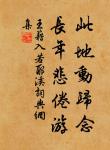 此地動歸念
長年悲倦游
王籍入若耶溪詞典網
集